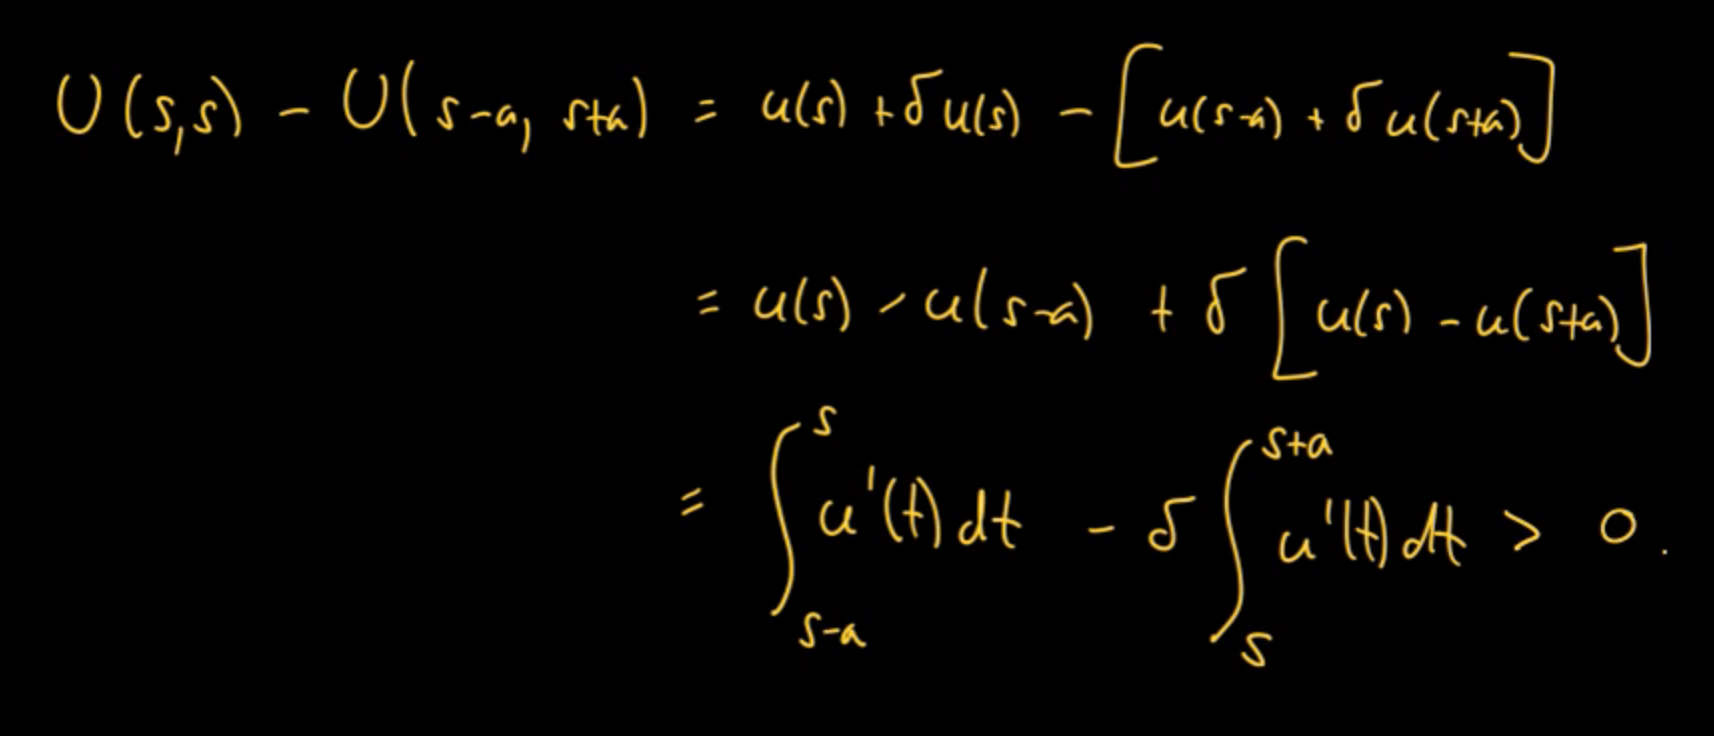 U(s,s) - U(s-a, s+a) = u(s) + δu(s) - [u(s-a) + δu(s+a)]
= u(s) - u(s-a) + δ[u(s) - u(s+a)]
= ∫_{s-a}^{s} u'(t)dt - δ∫_{s}^{s+a} u'(t)dt > 0.